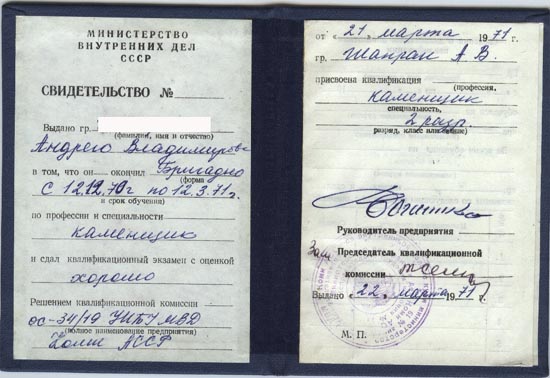 МИНИСТЕРСТВО
ВНУТРЕННИХ ДЕЛ
СССР
СВИДЕТЕЛЬСТВО №
Выдано гр.
(фамилия, имя и отчество)
Андрею Владимирови
в том, что он окончил Бригадно
(форма
С 12.12.70г по 12.3.71г.
и срок обучения)
по профессии и специальности
каменщик
и сдал квалификационный экзамен с оценкой
хорошо
Решением квалификационной комиссии
ос-34/19 УИТУ МВД
(полное наименование предприятия)
Коми АССР
от „21" марта 1971 г.
гр. Шапран А. В.
присвоена квалификация
(профессия,
каменщик
специальность,
2 разр
разряд, класс или звание)
Руководитель предприятия
Зам. Председатель квалификационной
комиссии
Выдано „22" марта 1971 г.
М. П.